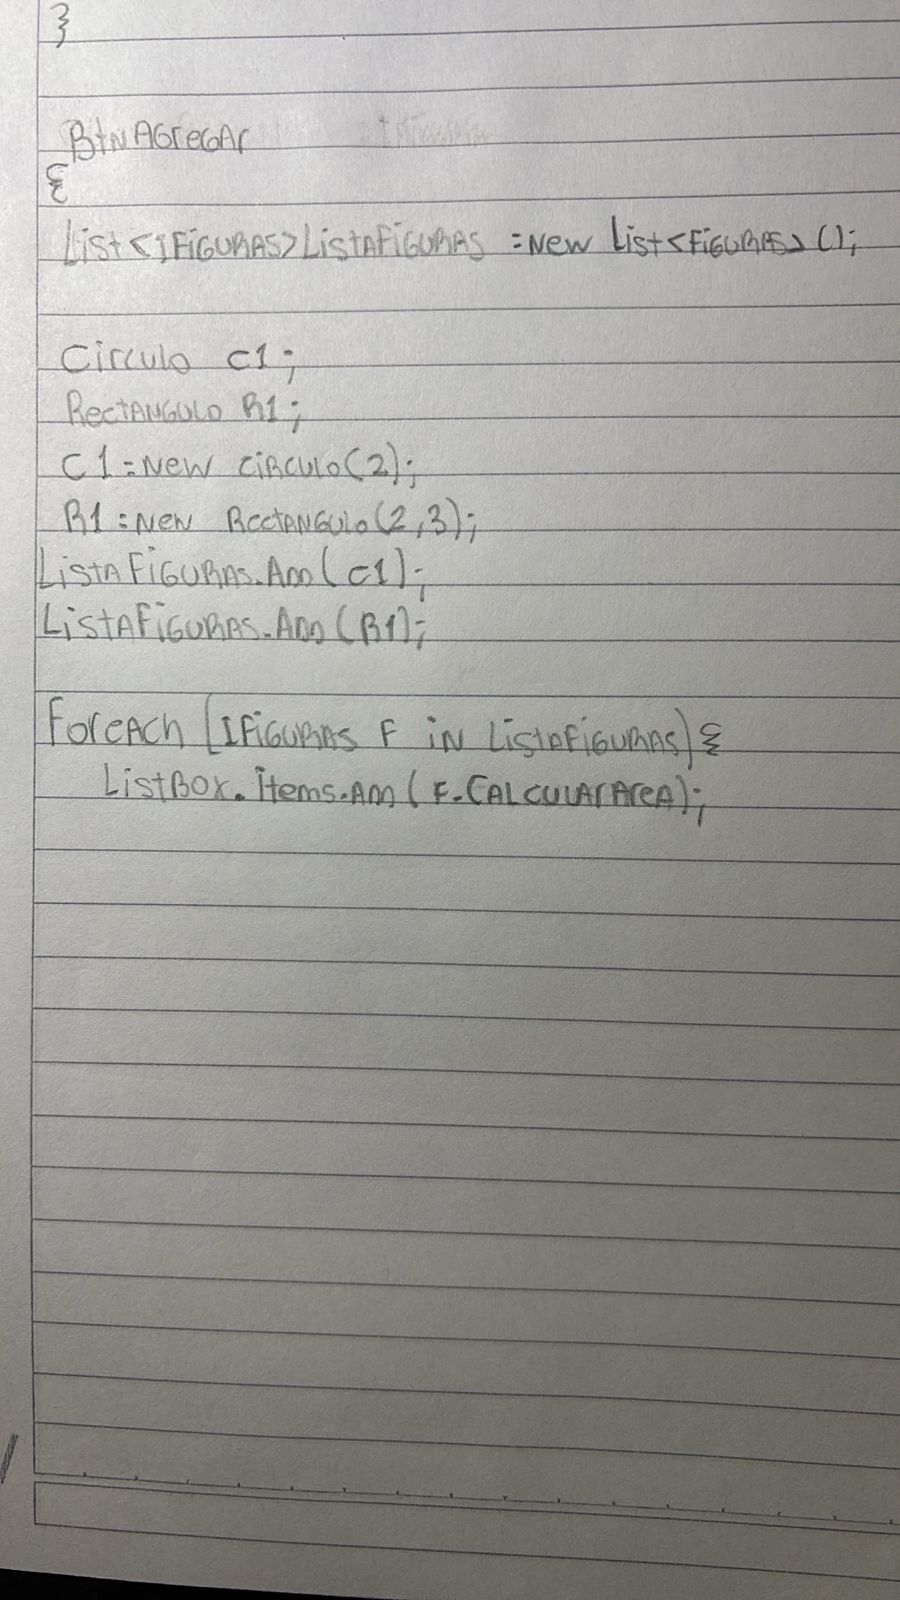 }
BtnAgregar
{
List<IFiguras>ListaFiguras = New List<Figuras>();
Circulo c1;
Rectangulo R1;
C1 = New Circulo(2);
R1 = New Rectangulo(2,3);
ListaFiguras.Add(c1);
ListaFiguras.Add(R1);
Foreach (IFiguras F in ListaFiguras){
ListBox.Items.Add(F.CalcularArea);